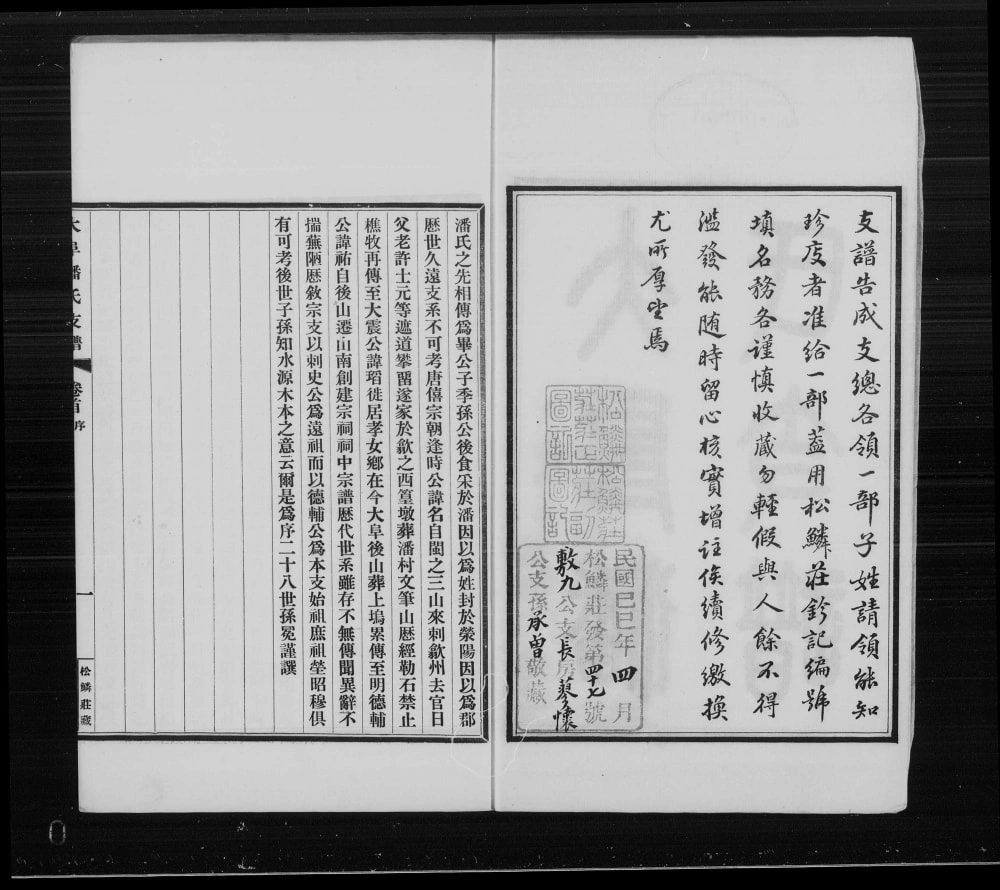 支譜告成支總各領一部子姓請領能知
珍庋者准給一部蓋用松鱗莊鈐記編號
填名務各謹慎收藏勿輕假與人餘不得
濫發能隨時留心核實增註俟續修繳換
尤所厚望焉
民國己巳年四月
松鱗莊發第四十七號
敷九公支長房蓼懷
公支孫承曾敬藏
潘氏之先相傳為畢公子季孫公後食采於潘因以為姓封於滎陽因以為郡
歷世久遠支系不可考唐僖宗朝逢時公諱名自閩之三山來刺歙州去官日
父老許士元等遮道攀留遂家於歙之西篁墩葬潘村文筆山歷經勒石禁止
樵牧再傳至大震公諱瑫徙居孝女鄉在今大阜後山葬上塢累傳至明德輔
公諱祐自後山遷山南創建宗祠祠中宗譜歷代世系雖存不無傳聞異辭不
揣蕪陋歷敘宗支以刺史公為遠祖而以德輔公為本支始祖庶祖塋昭穆俱
有可考後世子孫知水源木本之意云爾是為序二十八世孫冕謹譔
大阜潘氏支譜
卷首序
一
松鱗莊藏